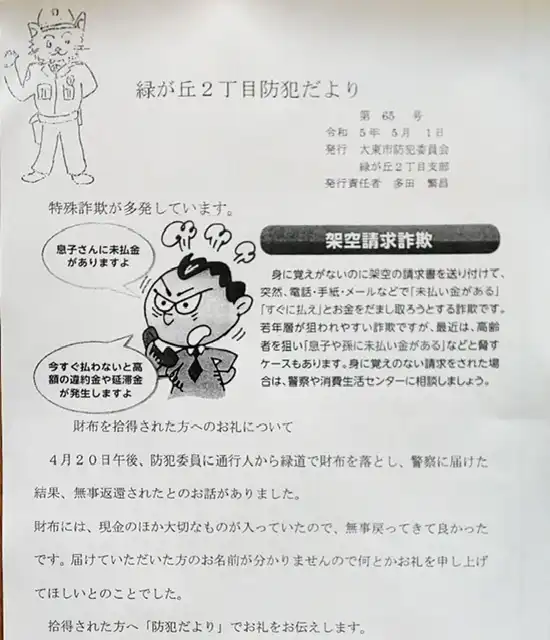 緑が丘２丁目防犯だより
第 65 号
令和 5年 5月 1日
発行 大東市防犯委員会
緑が丘2丁目支部
発行責任者 多田 繁昌
特殊詐欺が多発しています。
息子さんに未払金
がありますよ
今すぐ払わないと高
額の違約金や延滞金
が発生しますよ
架空請求詐欺
身に覚えがないのに架空の請求書を送り付けて、
突然、電話・手紙・メールなどで「未払い金がある」
「すぐに払え」とお金をだまし取ろうとする詐欺です。
若年層が狙われやすい詐欺ですが、最近は、高齢
者を狙い「息子や孫に未払い金がある」などと脅す
ケースもあります。身に覚えのない請求をされた場
合は、警察や消費生活センターに相談しましょう。
財布を拾得された方へのお礼について
４月２０日午後、防犯委員に通行人から緑道で財布を落とし、警察に届けた
結果、無事返還されたとのお話がありました。
財布には、現金のほか大切なものが入っていたので、無事戻ってきて良かった
です。届けていただいた方のお名前が分かりませんので何とかお礼を申し上げ
てほしいとのことでした。
拾得された方へ「防犯だより」でお礼をお伝えします。